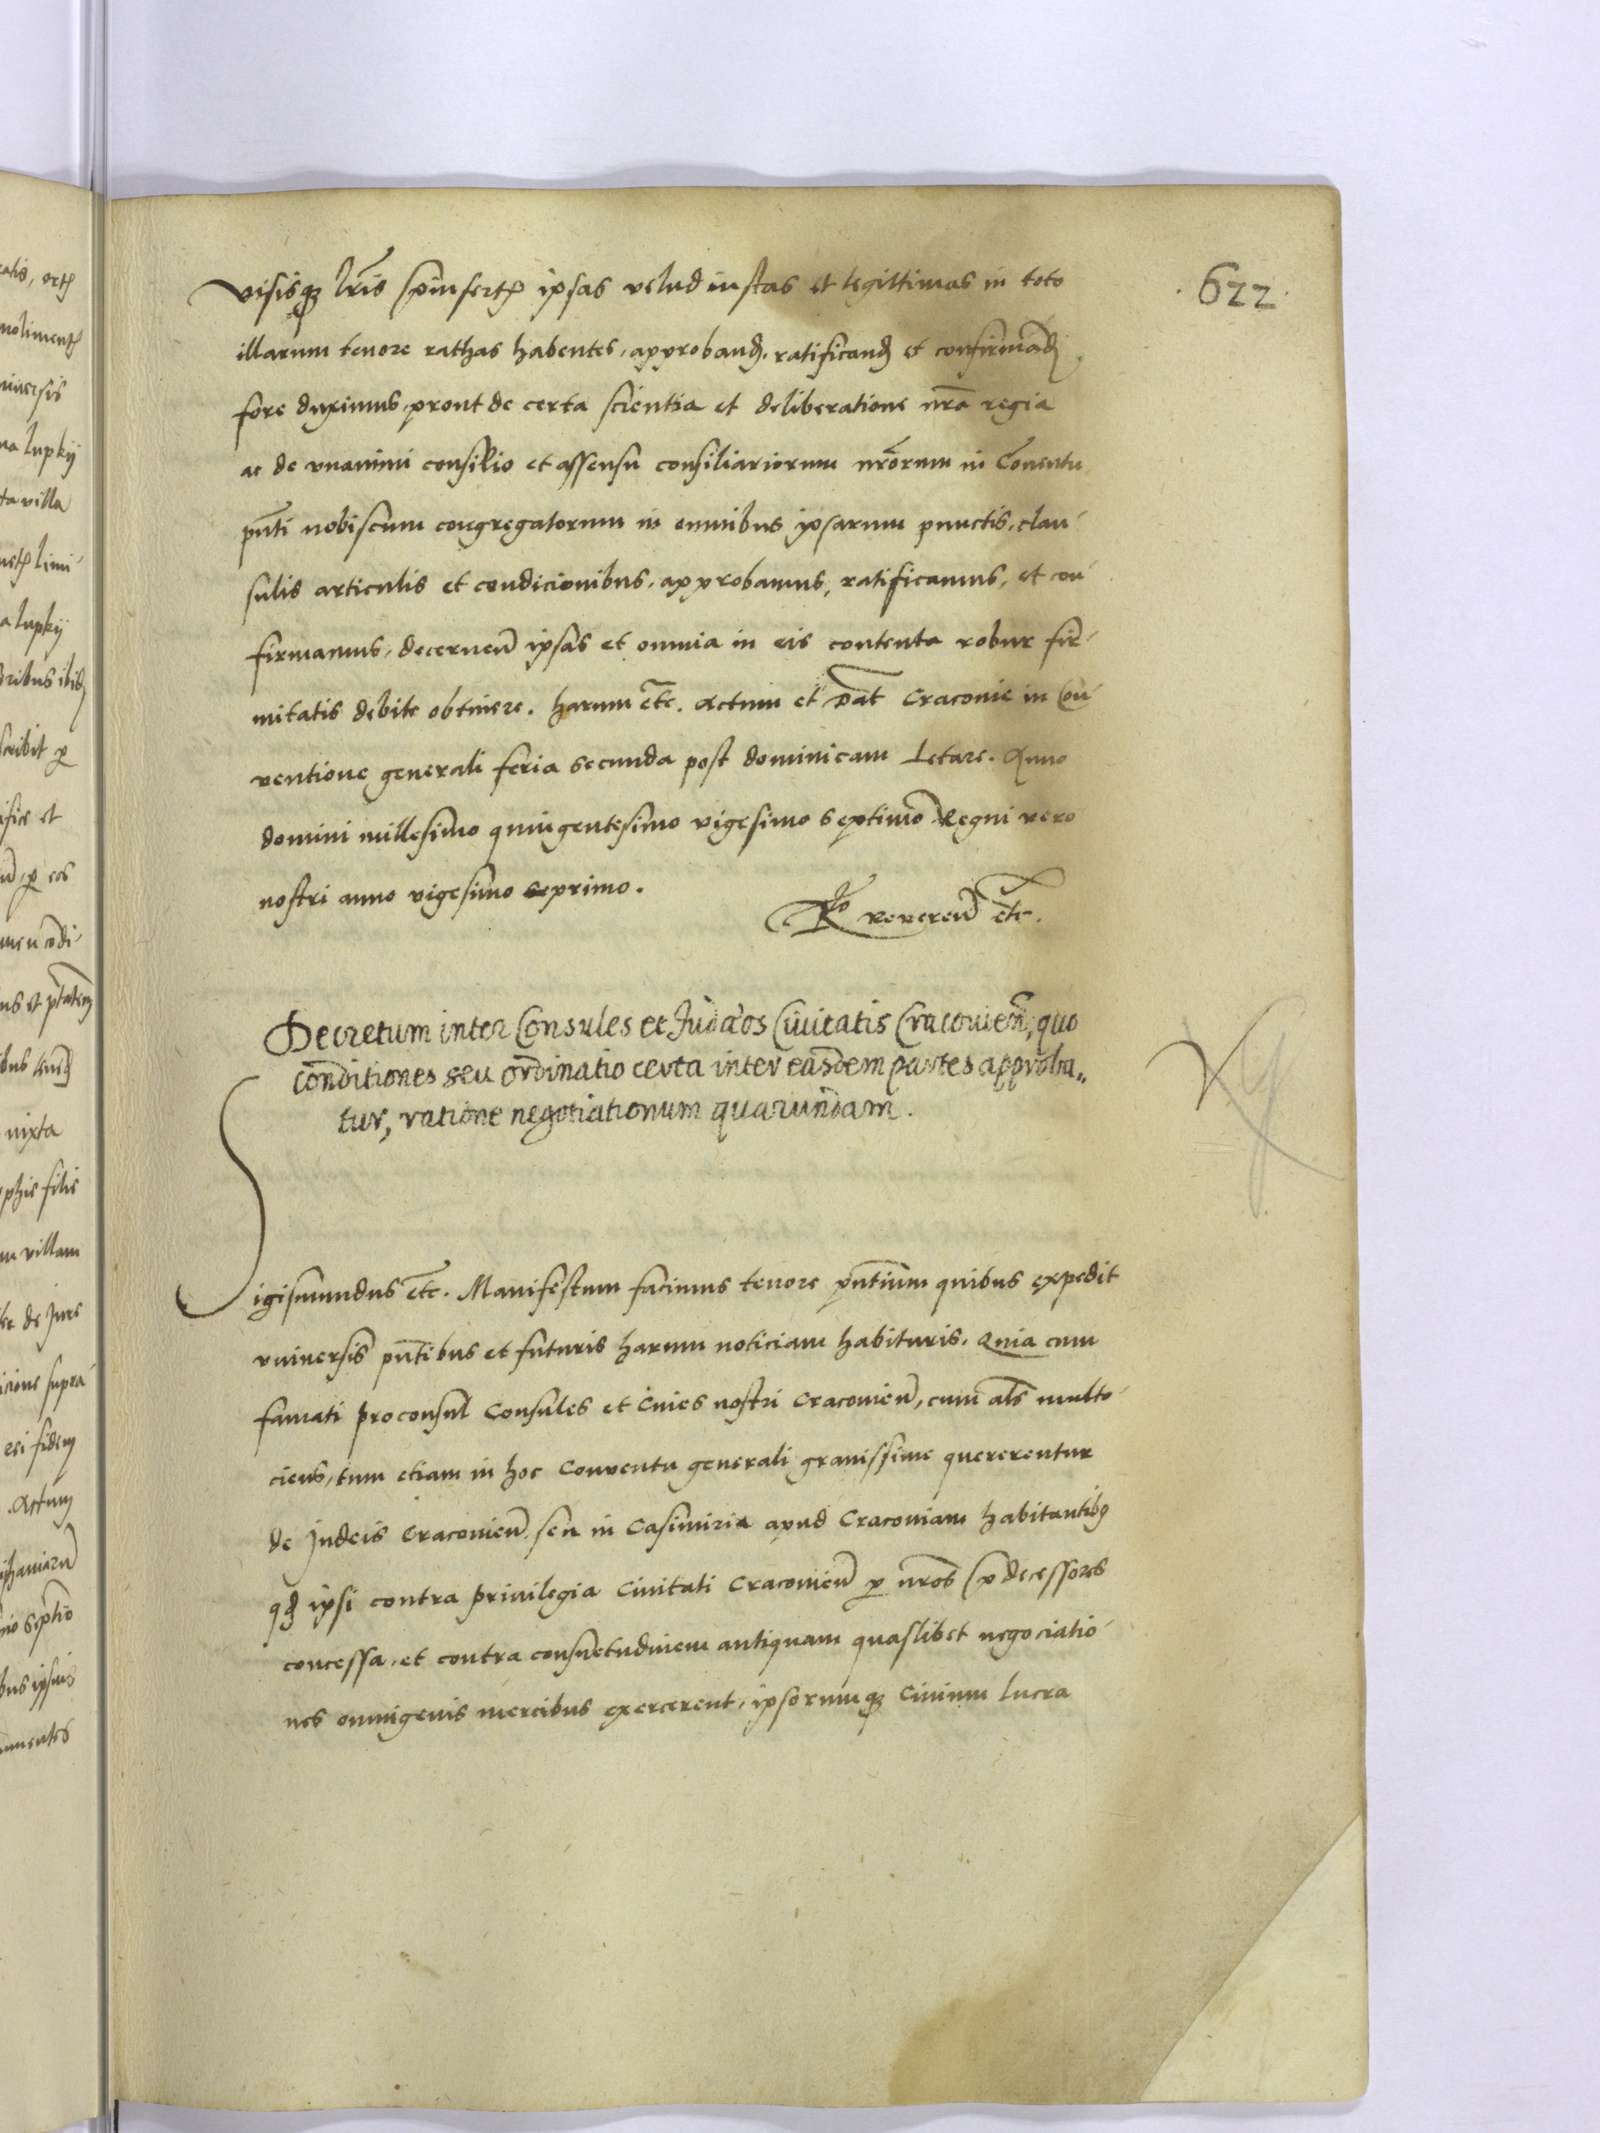 .622.
visisq̃ lr̃is p̃insertis ipsas velud iustas et legittimas in toto
illarum tenore rathas habentes, approband. ratificand et confirmãd
fore duximus, prout de certa scientia et deliberatione nr̃a regia
ac de vnanimi consilio et assensu consiliariorum nr̃orum in Conentu
pñti nobiscum congregatorum in omnibus ipsarum punctis, clau-
sulis articulis et condicionibus, approbamus, ratificamus, et con-
firmamus, decerneñ ipsas et omnia in eis contenta robur fir-
mitatis debite obtinere. harum etc̃. Actum et Dat̃ Cracovie in Con-
ventione generali feria secunda post dominicam Letare. Anno
domini millesimo quingentesimo vigesimo septimo Regni vero
nostri anno vigesimo primo.
Rᵒ reuereñ etc̃.
Decretum inter Consules et Judæos Ciuitatis Cracovieñ, quo
conditiones seu ordinatio certa inter easdem partes approba„
tur, ratione negotiationum quarundam.
Sigismundus etc̃. Manifestum facimus tenore pñtium quibus expedit
vniuersis pñtibus et futuris harum noticiam habituris. Quia cum
famati proconsul Consules et Ciues nostri Cracovieñ, cum als̃ multo-
ciens, tum etiam in hoc Conventu generali grauissime quererentur
de Judeis Cracovieñ seu in Casimiria apud Cracoviam habitantibꝰ
qd ipsi contra priuilegia Ciuitati Cracovieñ p nr̃os p̃decessores
concessa, et contra consuetudinem antiquam quaslibet negociatio-
nes omnigenis mercibus exercerent, ipsorumq̃ Ciuium lucra